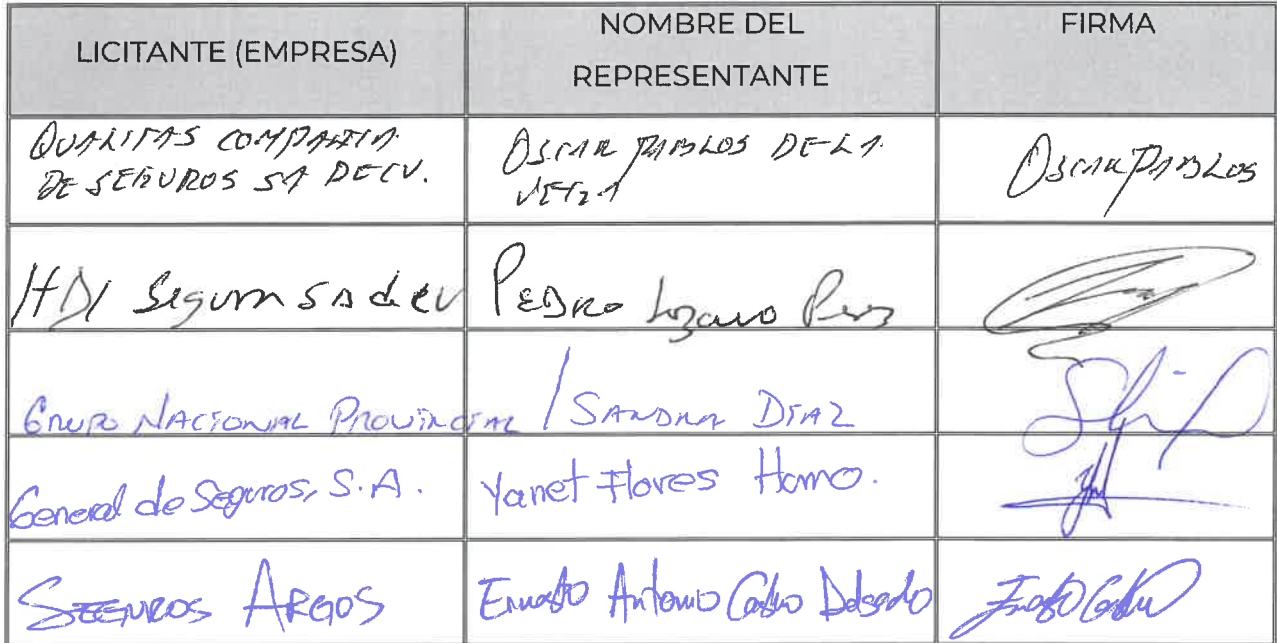 LICITANTE (EMPRESA)
NOMBRE DEL
REPRESENTANTE
FIRMA
QUALITAS COMPAÑIA
DE SEGUROS SA DE CV.
OSCAR PABLOS DE LA
VEGA
OSCAR PABLOS
HDI Seguros SA de CV
PEDRO Lozano Perez
GRUPO NACIONAL PROVINCIAL / SANDRA DIAZ
General de Seguros, S.A.
Yanet Flores Homo.
SEGUROS ARGOS
Ernesto Antonio Castro Delgado
Ernesto Castro